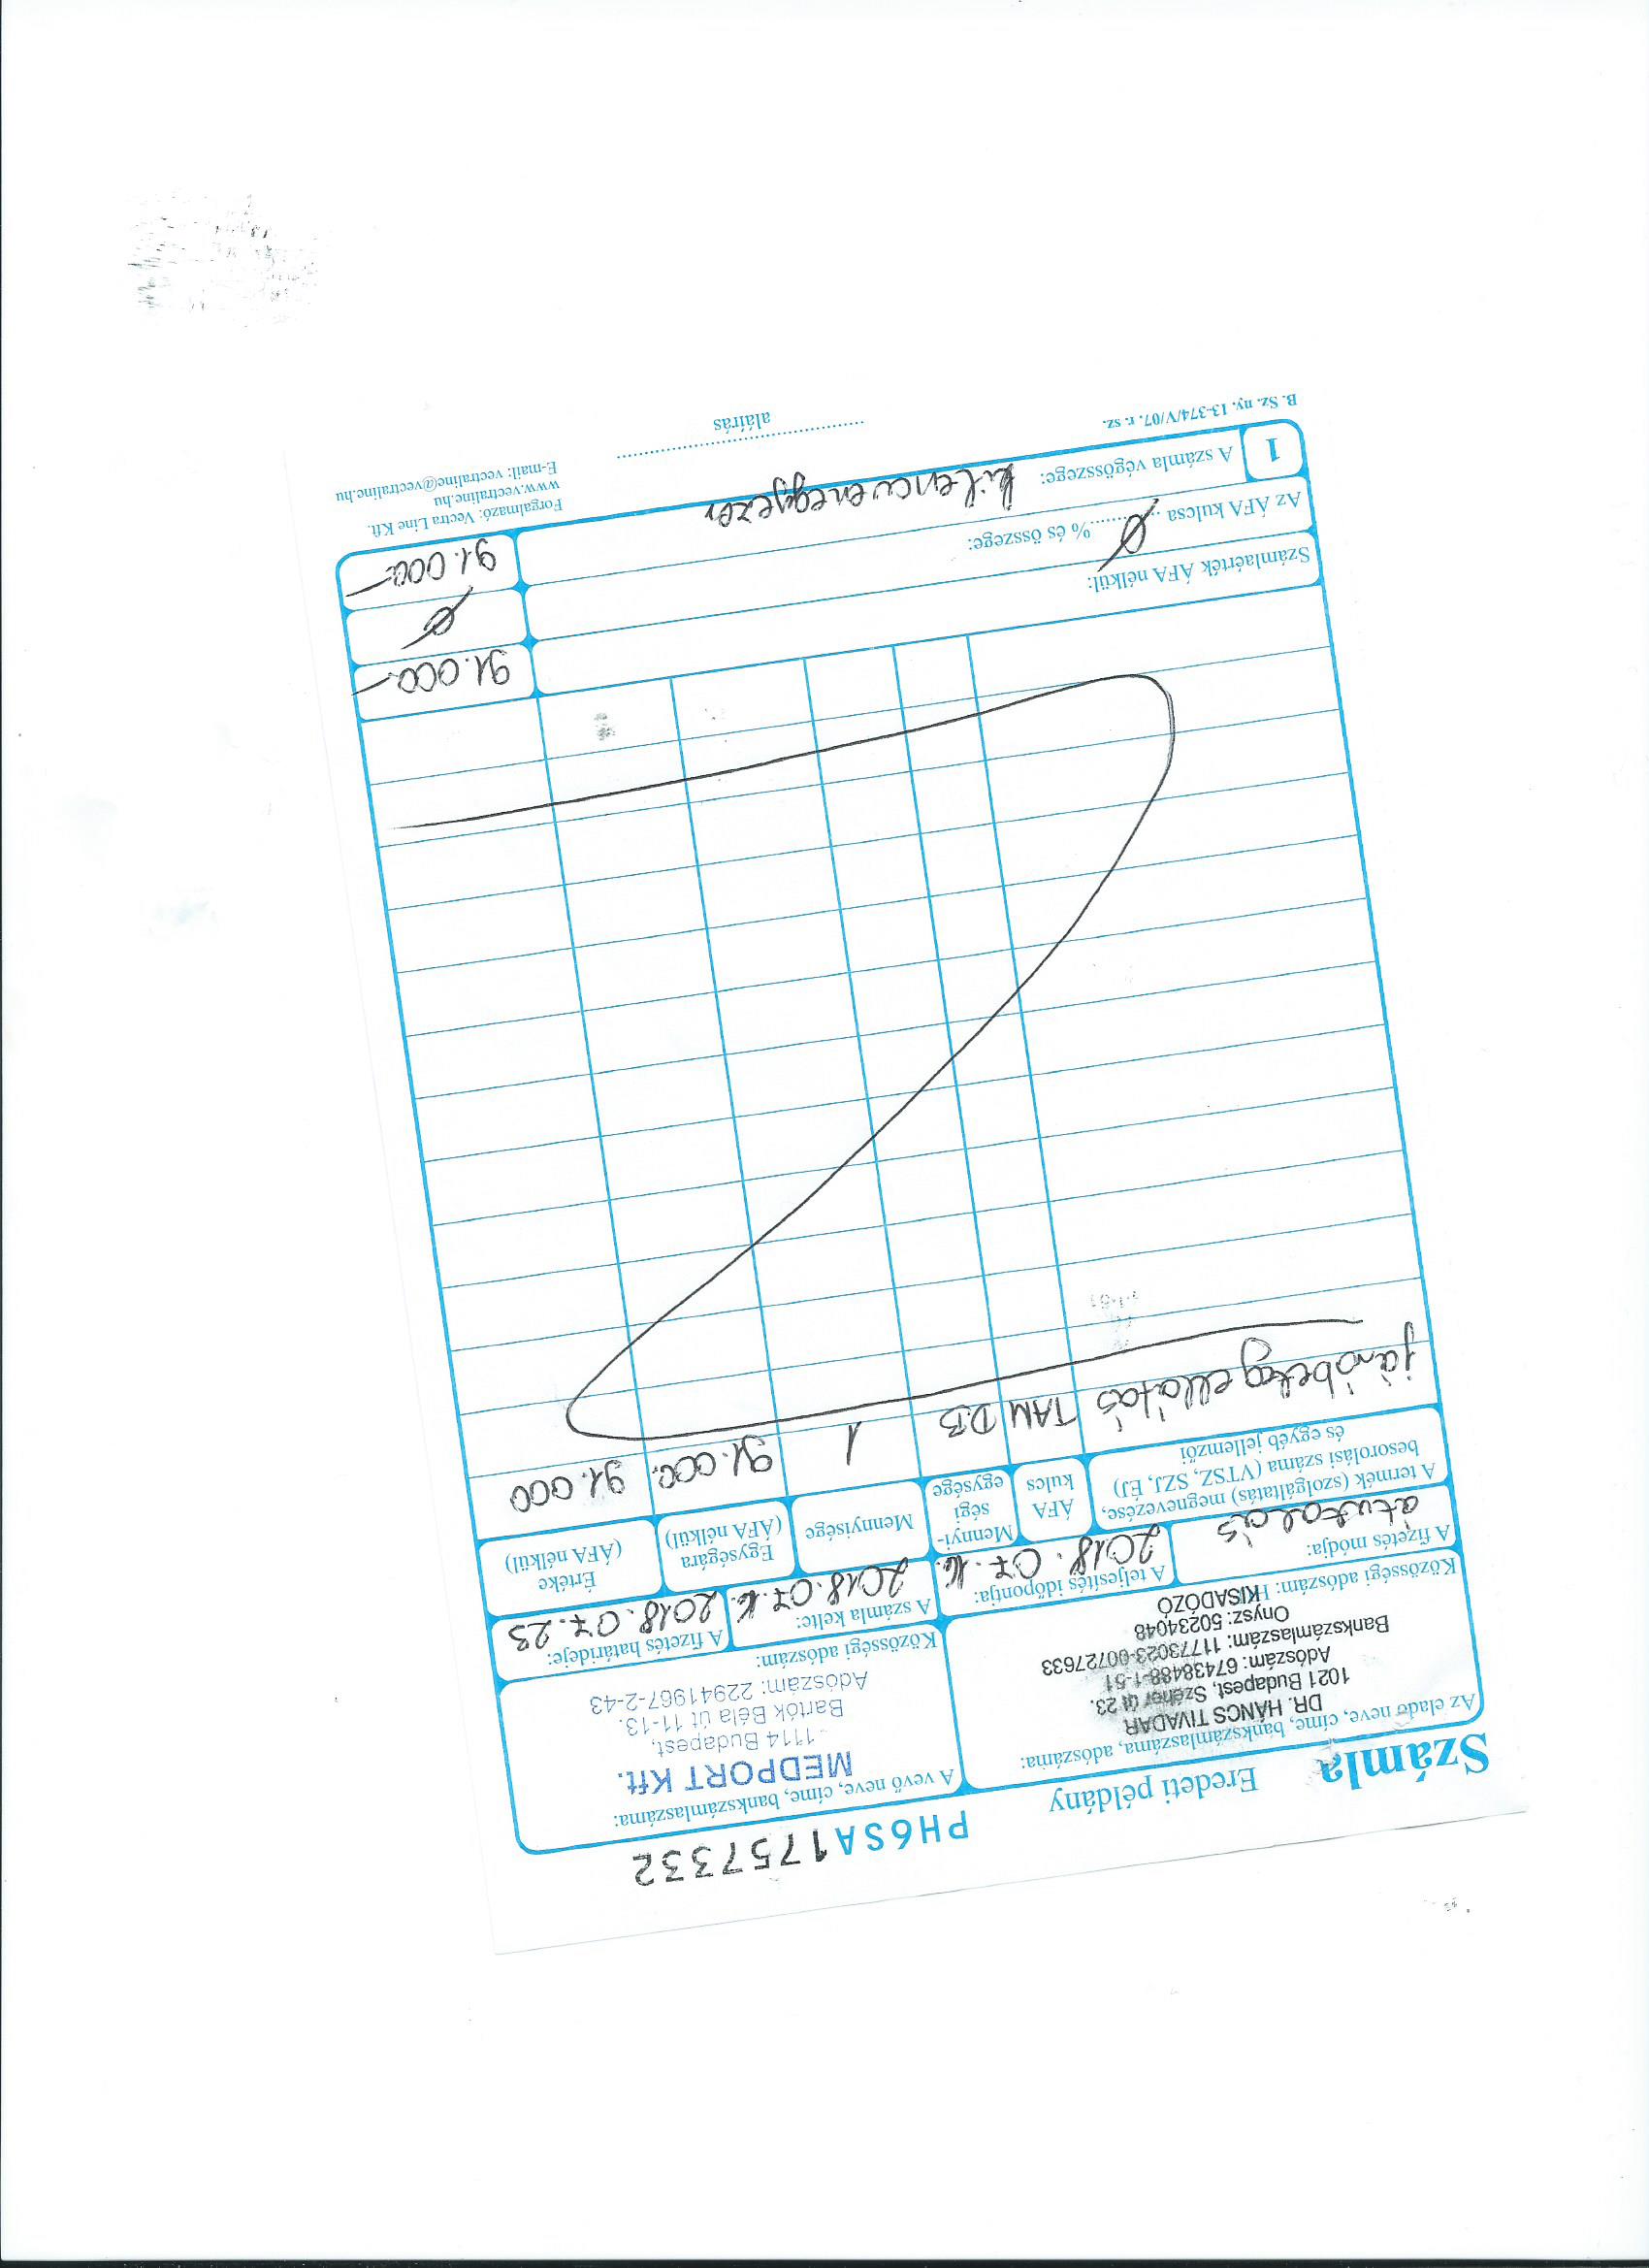 PH6SA1757332
Számla Eredeti példány
Az eladó neve, címe, bankszámlaszáma, adószáma:
DR. HÁNCS TIVADAR
1021 Budapest, Széher út 23.
Adószám: 67438488-1-51
Bankszámlaszám: 11773023-00727633
Onysz: 50234048
KISADÓZÓ
Közösségi adószám: H
A vevő neve, címe, bankszámlaszáma:
MEDPORT Kft.
1114 Budapest,
Bartók Béla út 11-13.
Adószám: 22941967-2-43
Közösségi adószám:
A fizetés módja:
átutalás
A teljesítés időpontja:
2018.07.16.
A számla kelte:
2018.07.16.
A fizetés határideje:
2018.07.23
A termék (szolgáltatás) megnevezése,
besorolási száma (VTSZ, SZJ, ÉJ)
és egyéb jellemzői
ÁFA
kulcs
Mennyi-
ségi
egysége
Mennyisége
Egységára
(ÁFA nélkül)
Értéke
(ÁFA nélkül)
járóbeteg ellátás TAM DB 1 91.000. 91.000
Számlaérték ÁFA nélkül: 91.000.-
Az ÁFA kulcsa Ø % és összege: Ø
1 A számla végösszege: kilencvenegyezer 91.000.-
B. Sz. ny. 13-374/V/07. r. sz.
aláírás
Forgalmazó: Vectra Line Kft.
www.vectraline.hu
E-mail: vectraline@vectraline.hu